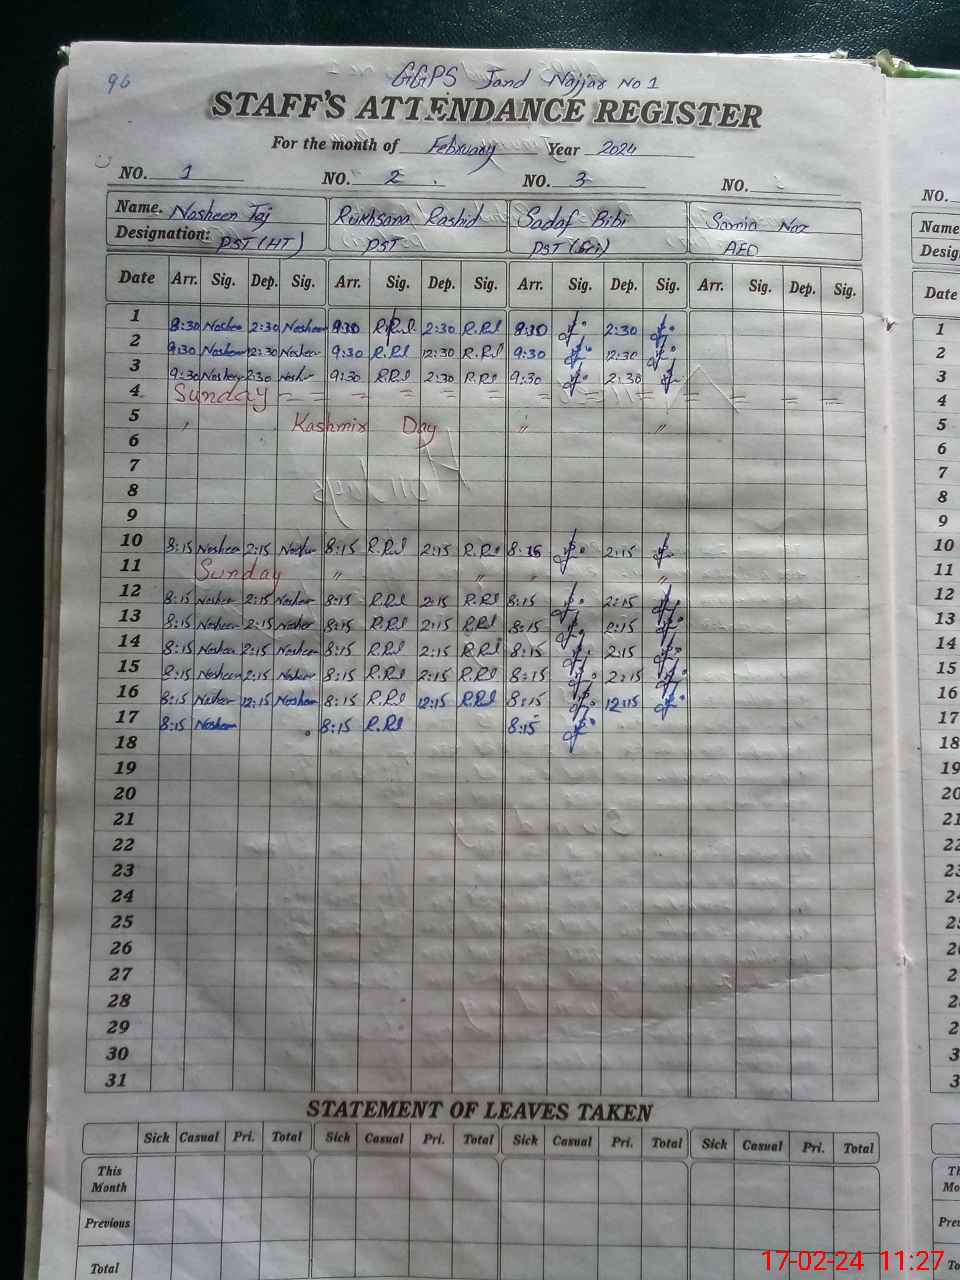 96
GGPS Jand Najjar No 1
STAFF'S ATTENDANCE REGISTER
For the month of February Year 2024
NO. 1 NO. 2 NO. 3 NO.
Name. Nosheen Taj Rukhsana Rashid Sadaf Bibi Samia Naz
Designation: PST (HT) PST PST (Sci) AEO
Date Arr. Sig. Dep. Sig. Arr. Sig. Dep. Sig. Arr. Sig. Dep. Sig. Arr. Sig. Dep. Sig.
1 8:30 Nosheen 2:30 Nosheen 9:30 R.Rd 2:30 R.Rd 9:30 2:30
2 9:30 Nosheen 12:30 Nosheen 9:30 R.Rd 12:30 R.Rd 9:30 12:30
3 9:30 Nosheen 2:30 Nosheen 9:30 R.Rd 2:30 R.Rd 9:30 2:30
4 Sunday = = = = = = = = = = =
5 " Kashmir Day " "
6
7
8
9
10 8:15 Nosheen 2:15 Nosheen 8:15 R.Rd 2:15 R.Rd 8:15 2:15
11 Sunday " " " "
12 8:15 Nosheen 2:15 Nosheen 8:15 R.Rd 2:15 R.Rd 8:15 2:15
13 8:15 Nosheen 2:15 Nosheen 8:15 R.Rd 2:15 R.Rd 8:15 2:15
14 8:15 Nosheen 2:15 Nosheen 8:15 R.Rd 2:15 R.Rd 8:15 2:15
15 8:15 Nosheen 2:15 Nosheen 8:15 R.Rd 2:15 R.Rd 8:15 2:15
16 8:15 Nosheen 12:15 Nosheen 8:15 R.Rd 12:15 R.Rd 8:15 12:15
17 8:15 Nosheen 8:15 R.Rd 8:15
18
19
20
21
22
23
24
25
26
27
28
29
30
31
STATEMENT OF LEAVES TAKEN
Sick Casual Pri. Total Sick Casual Pri. Total Sick Casual Pri. Total Sick Casual Pri. Total
This Month
Previous
Total
NO.
Name
Date
1
2
3
4
5
6
7
8
9
10
11
12
13
14
15
16
17
18
19
20
21
17-02-24 11:27